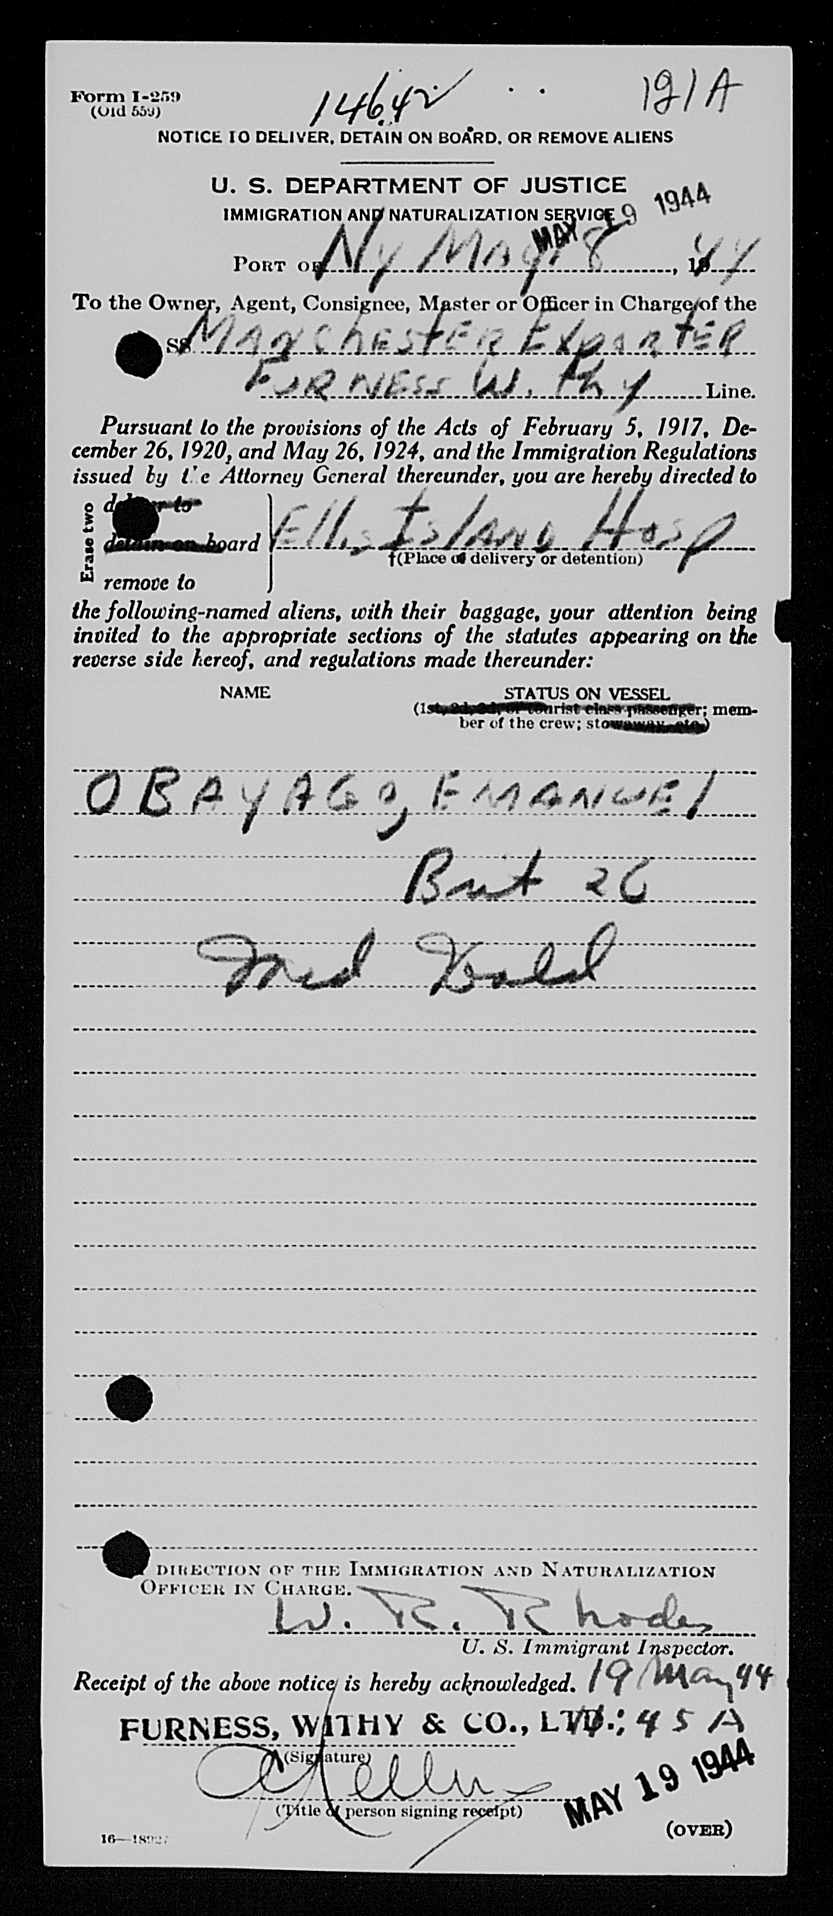 Form I-259
(Old 559)
14642
121A
NOTICE TO DELIVER, DETAIN ON BOARD, OR REMOVE ALIENS
U. S. DEPARTMENT OF JUSTICE
IMMIGRATION AND NATURALIZATION SERVICE
MAY 19 1944
PORT OF Ny May 18, 1944
To the Owner, Agent, Consignee, Master or Officer in Charge of the
SS Manchester Exporter
Furness W. thy Line.
Pursuant to the provisions of the Acts of February 5, 1917, De-
cember 26, 1920, and May 26, 1924, and the Immigration Regulations
issued by the Attorney General thereunder, you are hereby directed to
Erase two
deliver to
detain on board
remove to
Ellis Island Hosp
†(Place of delivery or detention)
the following-named aliens, with their baggage, your attention being
invited to the appropriate sections of the statutes appearing on the
reverse side hereof, and regulations made thereunder:
NAME
STATUS ON VESSEL
(1st, 2d, 3d, or tourist class passenger; mem-
ber of the crew; stowaway, etc.)
OBAYAGO, EMANUEl
Brit 26
Med
DIRECTION OF THE IMMIGRATION AND NATURALIZATION
OFFICER IN CHARGE.
W. R. Rhodes
U. S. Immigrant Inspector.
Receipt of the above notice is hereby acknowledged. 19 May 44
FURNESS, WITHY & CO., LTD. 45 A
(Signature)
(Title of person signing receipt)
MAY 19 1944
(OVER)
16—18927